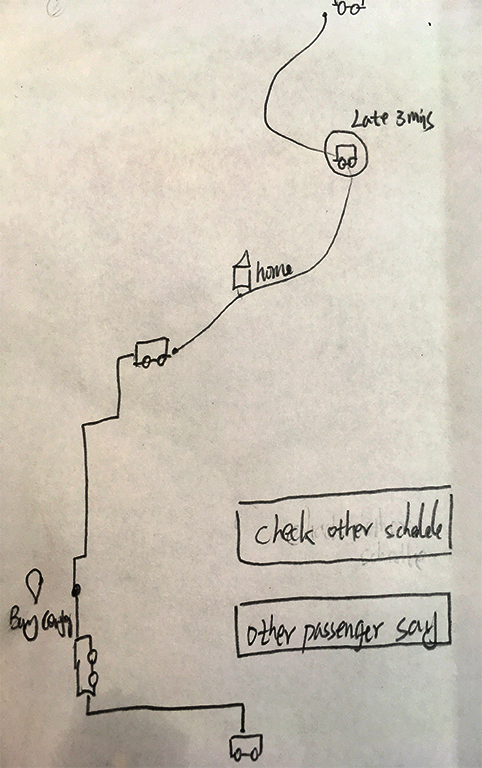 Late 3 mins
home
check other schedule
other passenger say